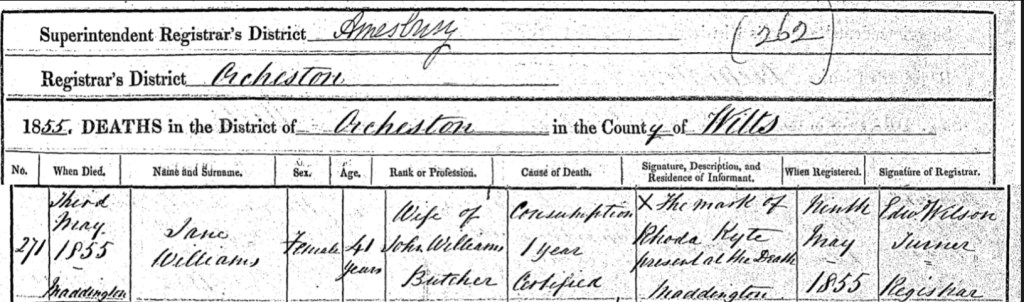 Superintendent Registrar's District Amesbury (262)
Registrar's District Orcheston
1855. DEATHS in the District of Orcheston in the County of Wilts
No. When Died. Name and Surname. Sex. Age. Rank or Profession. Cause of Death. Signature, Description, and Residence of Informant. When Registered. Signature of Registrar.
271 Third May 1855 Maddington
Jane Williams
Female
41 years
Wife of John Williams Butcher
Consumption 1 year Certified
X The mark of Rhoda Kyte present at the Death Maddington
Ninth May 1855
Edw Wilson Turner Registrar